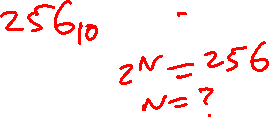 256₁₀
2ᴺ = 256
N = ?